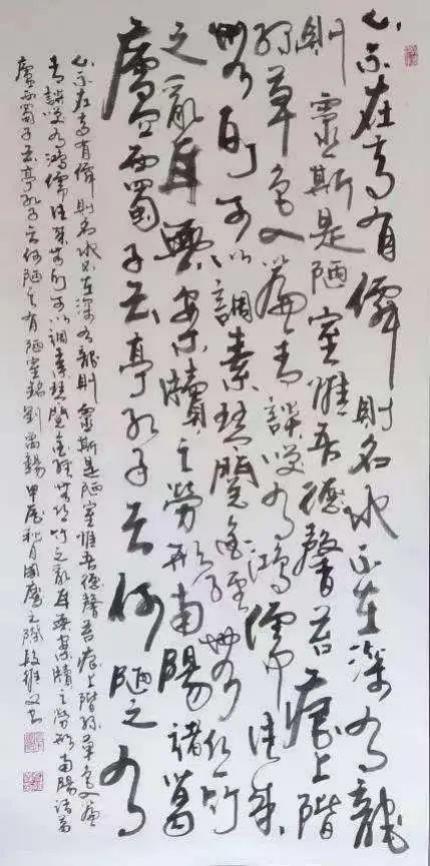 山不在高有僊則名水不在深有龍
則靈斯是陋室惟吾德馨苔痕上階
綠草色入簾青談笑有鴻儒往來
無白丁可以調素琴閱金經無絲竹
之亂耳無案牘之勞形南陽諸葛
廬西蜀子云亭孔子云何陋之有
山不在高有僊則名水不在深有龍則靈斯是陋室惟吾德馨苔痕上階綠草色入簾
青談笑有鴻儒往來無白丁可以調素琴閱金經無絲竹之亂耳無案牘之勞形南陽諸葛
廬西蜀子云亭孔子云何陋之有陋室銘劉禹錫甲辰秋月國慶之際